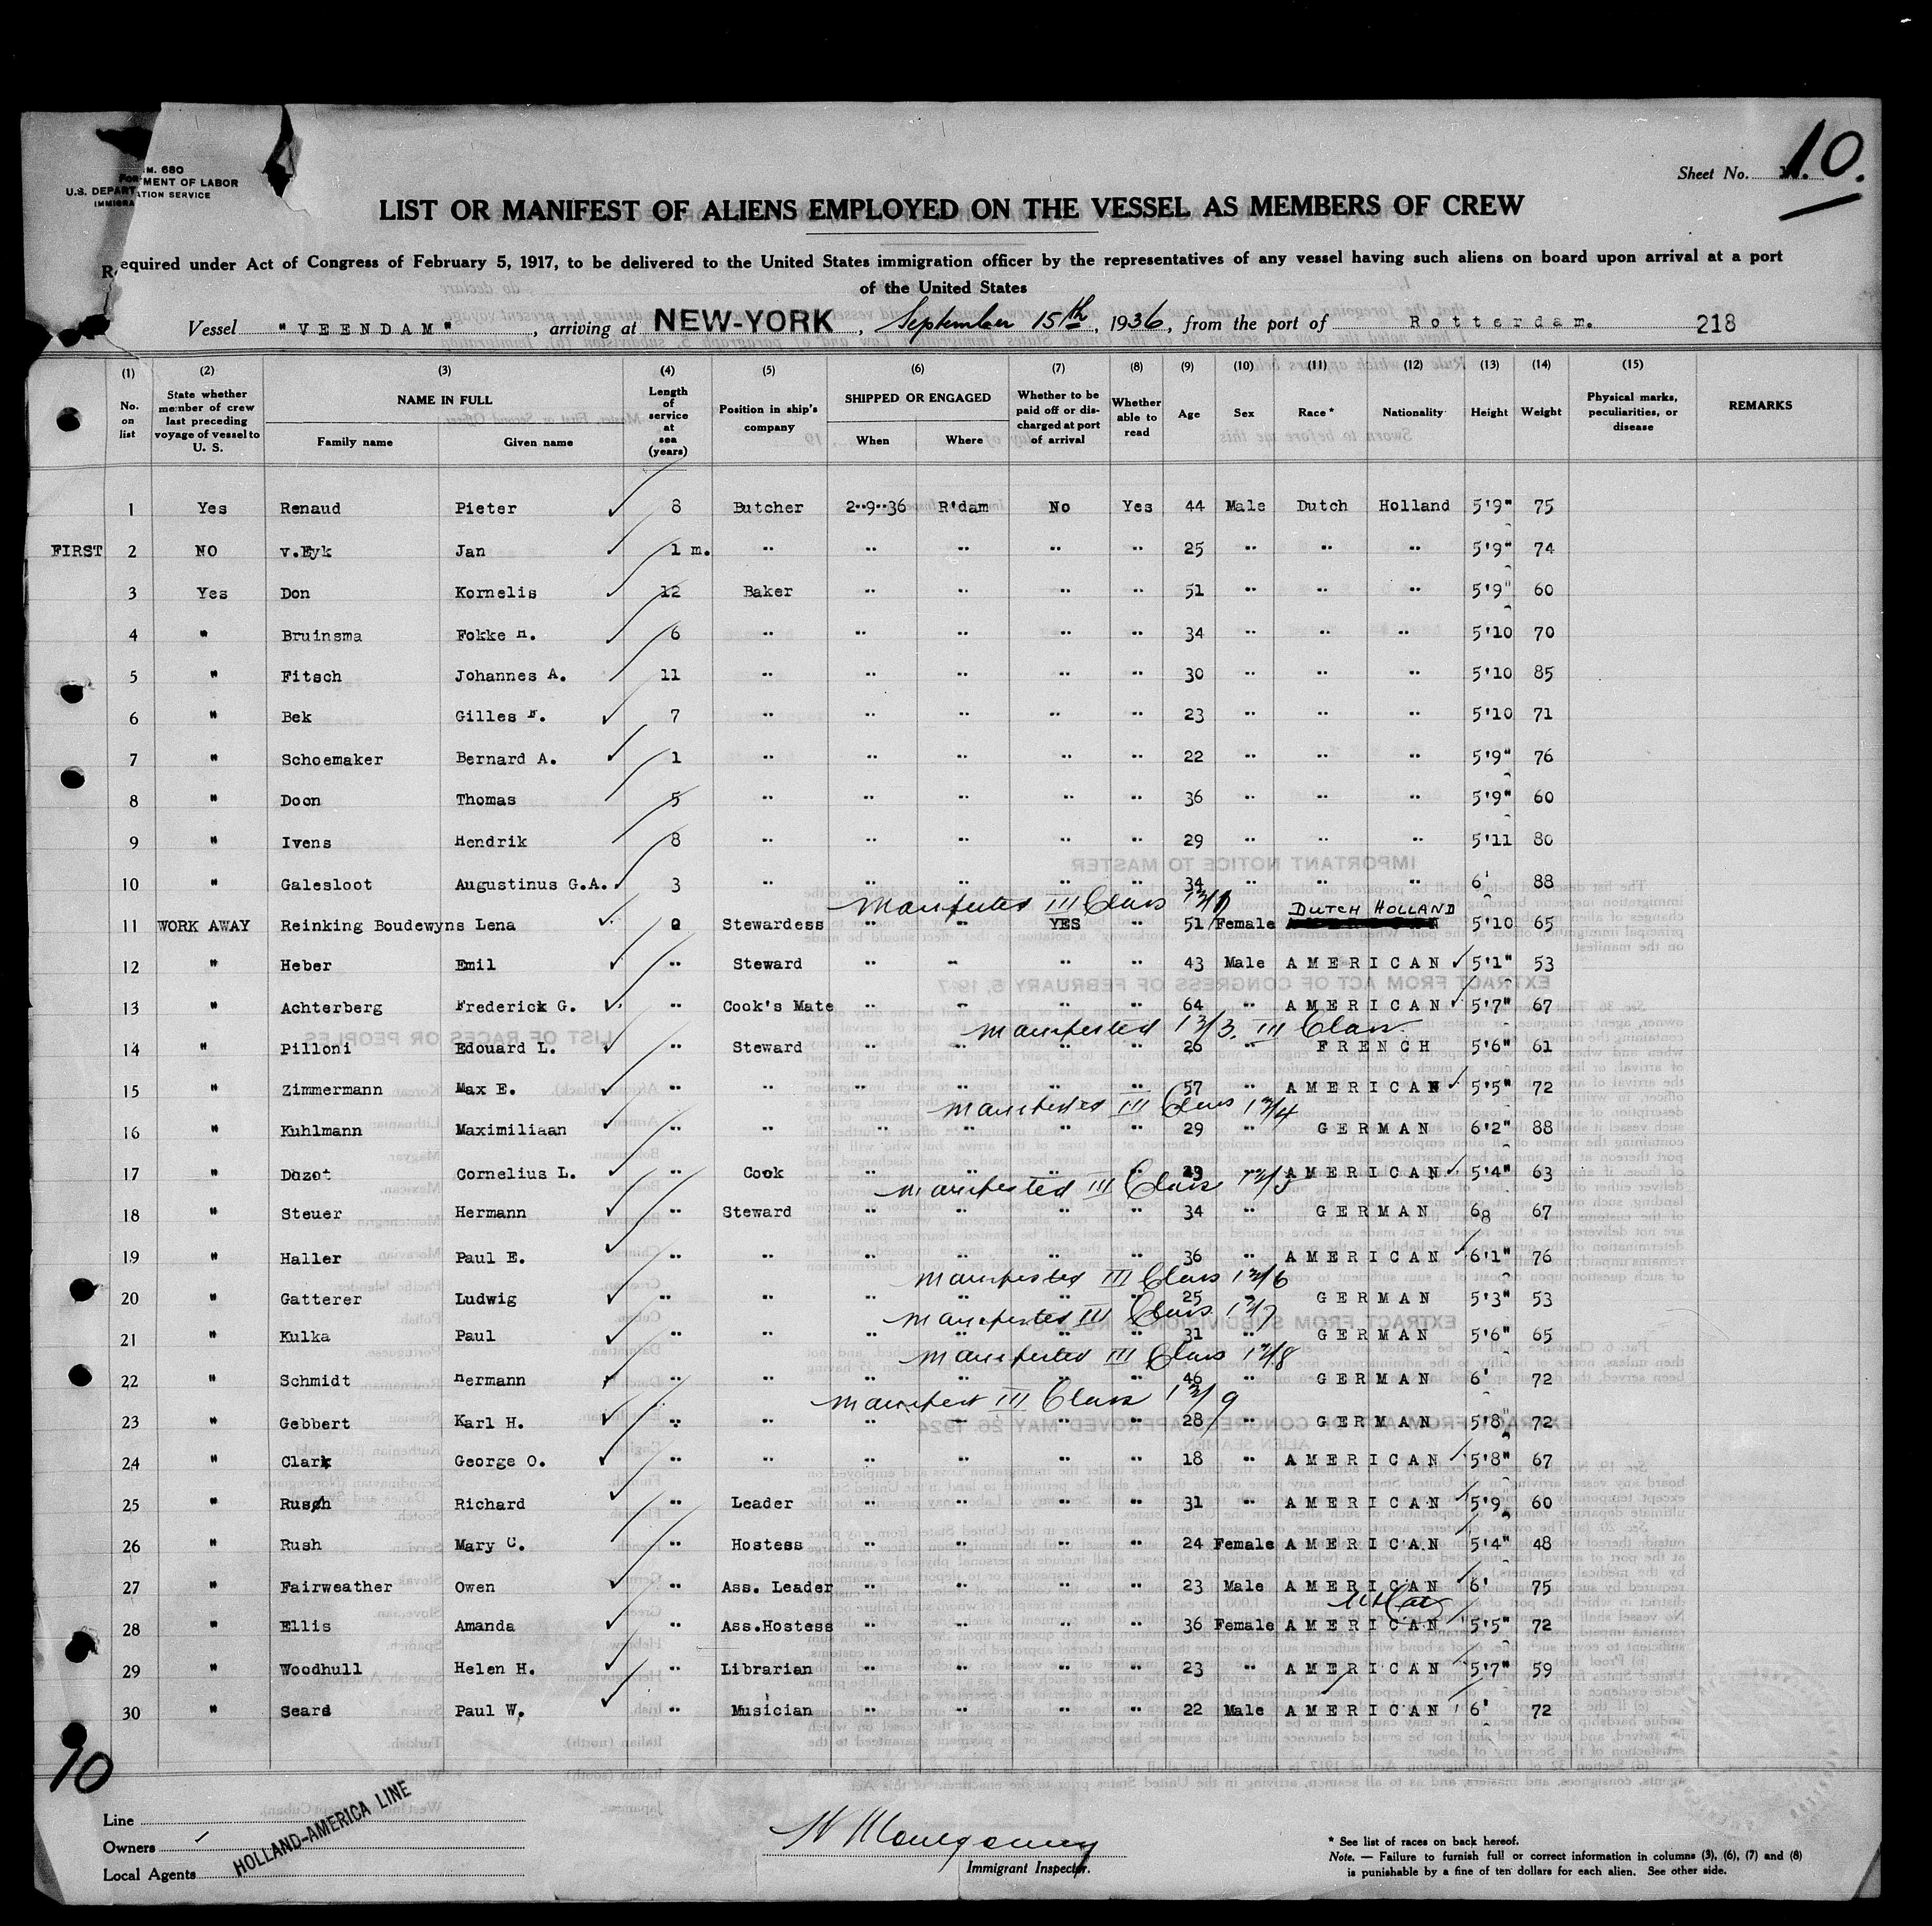 Sheet No. 10.
FORM. 680
U.S. DEPARTMENT OF LABOR
IMMIGRATION SERVICE
LIST OR MANIFEST OF ALIENS EMPLOYED ON THE VESSEL AS MEMBERS OF CREW
Required under Act of Congress of February 5, 1917, to be delivered to the United States immigration officer by the representatives of any vessel having such aliens on board upon arrival at a port
of the United States
Vessel "VEENDAM", arriving at NEW-YORK, September 15th, 1936, from the port of Rotterdam. 218
(1) (2) (3) (4) (5) (6) (7) (8) (9) (10) (11) (12) (13) (14) (15)
No. on list State whether member of crew last preceding voyage of vessel to U. S. NAME IN FULL Family name Given name Length of service at sea (years) Position in ship's company SHIPPED OR ENGAGED When Where Whether to be paid off or discharged at port of arrival Whether able to read Age Sex Race* Nationality Height Weight Physical marks, peculiarities, or disease REMARKS
1 Yes Renaud Pieter 8 Butcher 2-9-36 R'dam No Yes 44 Male Dutch Holland 5'9" 75
FIRST 2 NO v.Eyk Jan 1 m. " " " " " 25 " " " 5'9" 74
3 Yes Don Kornelis 12 Baker " " " " 51 " " " 5'9" 60
4 " Bruinsma Fokke H. 6 " " " " " 34 " " " 5'10 70
5 " Fitsch Johannes A. 11 " " " " " 30 " " " 5'10 85
6 " Bek Gilles F. 7 " " " " " 23 " " " 5'10 71
7 " Schoemaker Bernard A. 1 " " " " " 22 " " " 5'9" 76
8 " Doon Thomas 5 " " " " " 36 " " " 5'9" 60
9 " Ivens Hendrik 8 " " " " " 29 " " " 5'11 80
10 " Galesloot Augustinus G.A. 3 " " " " " 34 " " " 6' 88
Manifested III Class
DUTCH HOLLAND
11 WORK AWAY Reinking Boudewyns Lena 0 Stewardess " " YES " 51 Female 5'10 65
12 " Heber Emil " Steward " " " " 43 Male AMERICAN 5'1" 53
13 " Achterberg Frederick G. " Cook's Mate " " " " 64 " AMERICAN 5'7" 67
Manifested 12/3. III Class.
14 " Pilloni Edouard L. " Steward " " " " 26 " FRENCH 5'6" 61
15 " Zimmermann Max E. " " " " " " 57 " AMERICAN 5'5" 72
Manifested III Class 12/4
16 " Kuhlmann Maximiliaan " " " " " " 29 " GERMAN 6'2" 88
17 " Dozot Cornelius L. " Cook " " " " AMERICAN 5'4" 63
Manifested III Class 12/5
18 " Steuer Hermann " Steward " " " " 34 " GERMAN 6 8 67
19 " Haller Paul E. " " " " " " 36 " AMERICAN 6'1" 76
Manifested III Class 12/6
20 " Gatterer Ludwig " " " " " " 25 " GERMAN 5'3" 53
Manifested III Class 12/7
21 " Kulka Paul " " " " " " 31 " GERMAN 5'6" 65
Manifested III Class 12/8
22 " Schmidt Hermann " " " " " " 46 " GERMAN 6' 72
Manifest III Class 12/9
23 " Gebbert Karl H. " " " " " " 28 " GERMAN 5'8" 72
24 " Clark George O. " " " " " " 18 " AMERICAN 5'8" 67
25 " Rush Richard " Leader " " " " 31 " AMERICAN 5'9 60
26 " Rush Mary C. " Hostess " " " " 24 Female AMERICAN 5'4" 48
27 " Fairweather Owen " Ass. Leader " " " " 23 Male AMERICAN 6' 75
28 " Ellis Amanda " Ass.Hostess " " " " 36 Female AMERICAN 5'5" 72
29 " Woodhull Helen H. " Librarian " " " " 23 " AMERICAN 5'7" 59
30 " Seard Paul W. " Musician " " " " 22 Male AMERICAN 6' 72
10
Line
Owners
Local Agents
HOLLAND-AMERICA LINE
H Montgomery
Immigrant Inspector.
* See list of races on back hereof.
Note. — Failure to furnish full or correct information in columns (3), (6), (7) and (8)
is punishable by a fine of ten dollars for each alien. See other side.